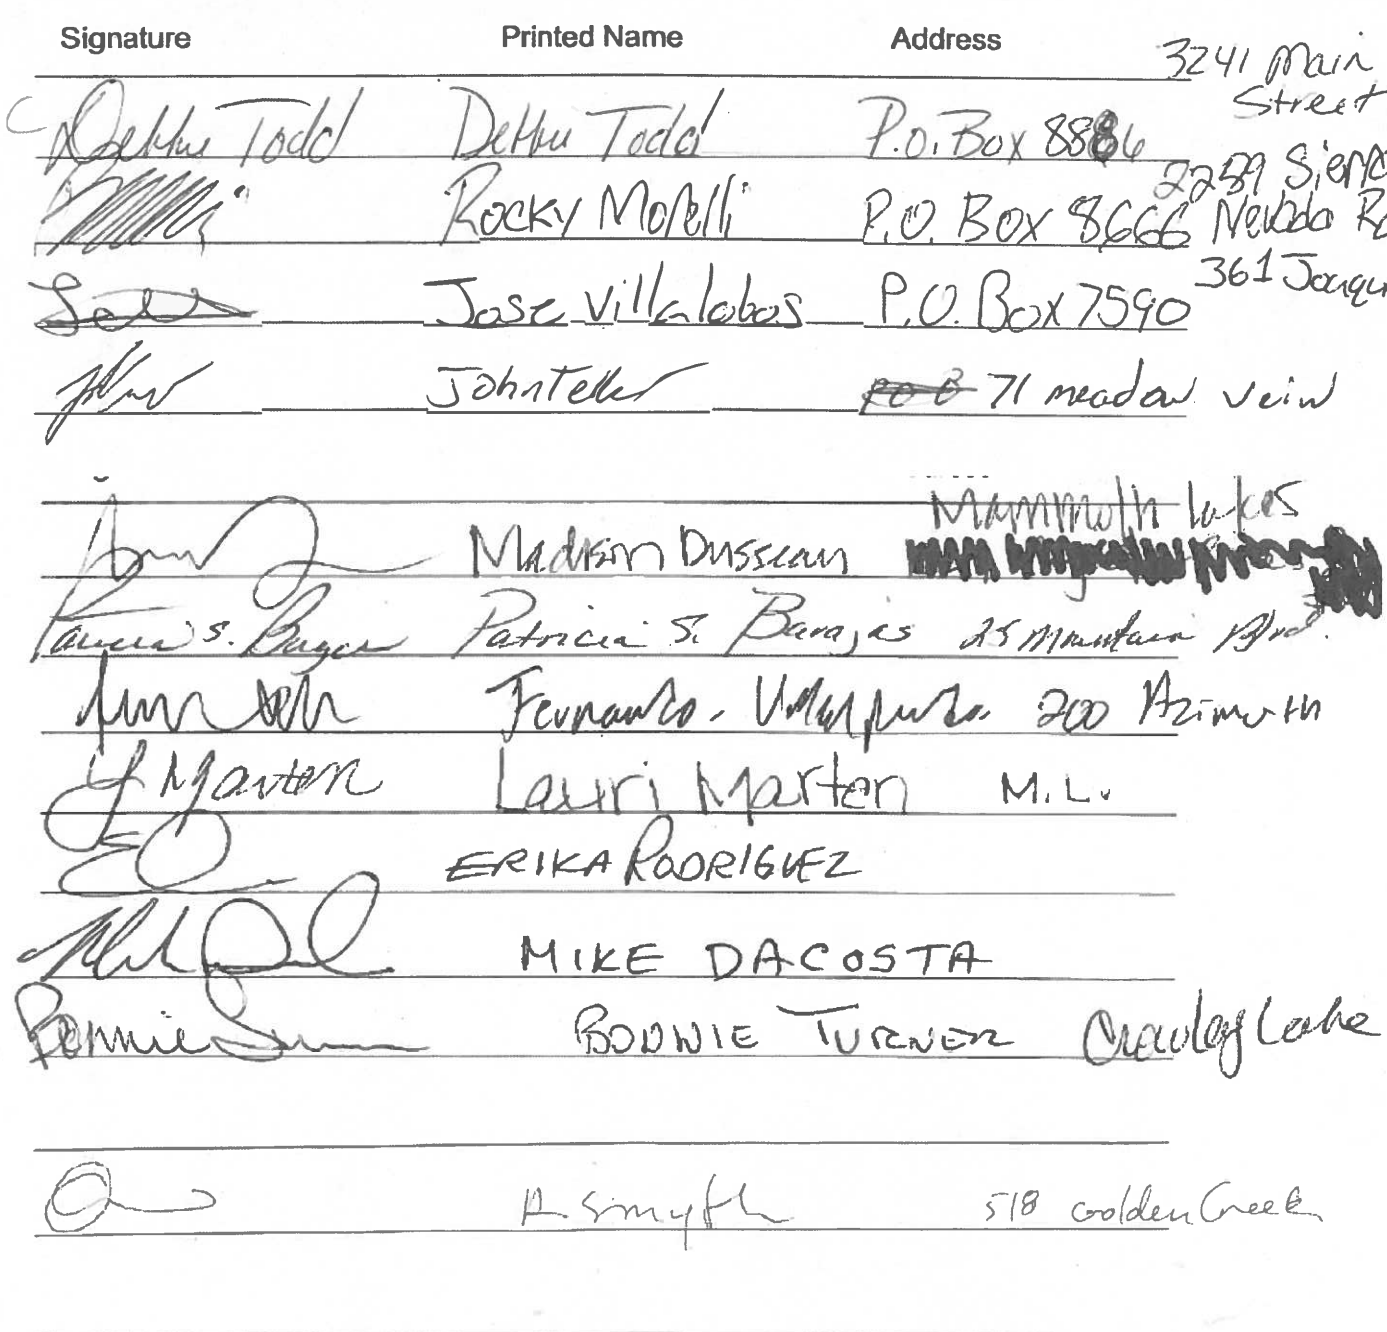 Signature Printed Name Address
3241 Main Street
Debbie Todd Debbie Todd P.O. Box 8886
Rocky Morelli P.O. Box 8666 2289 Sierra Nevada Rd
Jose Villalobos P.O. Box 7590 361 Joaqui
John Teller 71 meadow vein
Madison Dusseau Mammoth Lakes
Patricia S. Barajas 25 Mountain Blvd.
Fernando 200 Azimuth
Marten Lauri Marten M.L.
ERIKA RODRIGUEZ
MIKE DACOSTA
Bonnie BONNIE TURNER Crowley Lake
A. Smyth 518 Golden Creek